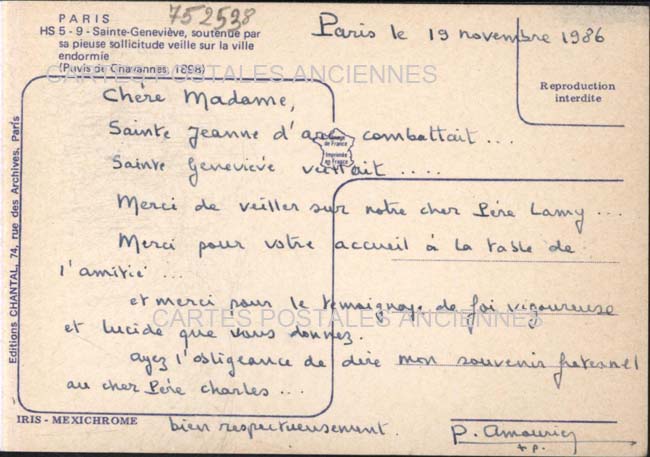 752538
PARIS
HS 5 - 9 - Sainte-Geneviève, soutenue par
sa pieuse sollicitude veille sur la ville
endormie
(Puvis de Chavannes, 1898)
Paris le 19 novembre 1986
CARTES POSTALES ANCIENNES
Reproduction
interdite
Chère Madame,
Sainte Jeanne d'arc combattait ...
Image
de France
Imprimée
en France
Sainte Geneviève veillait ....
Merci de veiller sur notre cher Père Lamy ...
Merci pour votre accueil à la table de
l'amitié ...
et merci pour le témoignage de foi vigoureuse
CARTES POSTALES ANCIENNES
et lucide que vous donnez.
ayez l'obligeance de dire mon souvenir fraternel
au cher Père Charles ...
bien respectueusement.
Editions CHANTAL, 74, rue des Archives, Paris
IRIS - MEXICHROME